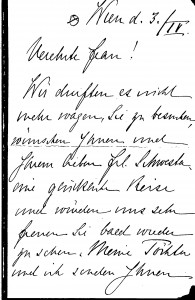 Wien d. 3./IV.
Verehrte Frau!
Wir durften es nicht
mehr wagen, Sie zu besuchen
wünschen Ihnen und
Ihrem lieben Frl Schwester
eine glückliche Reise
und würden uns sehr
freuen Sie bald wieder
zu sehen. Meine Töchter
und ich senden Ihnen